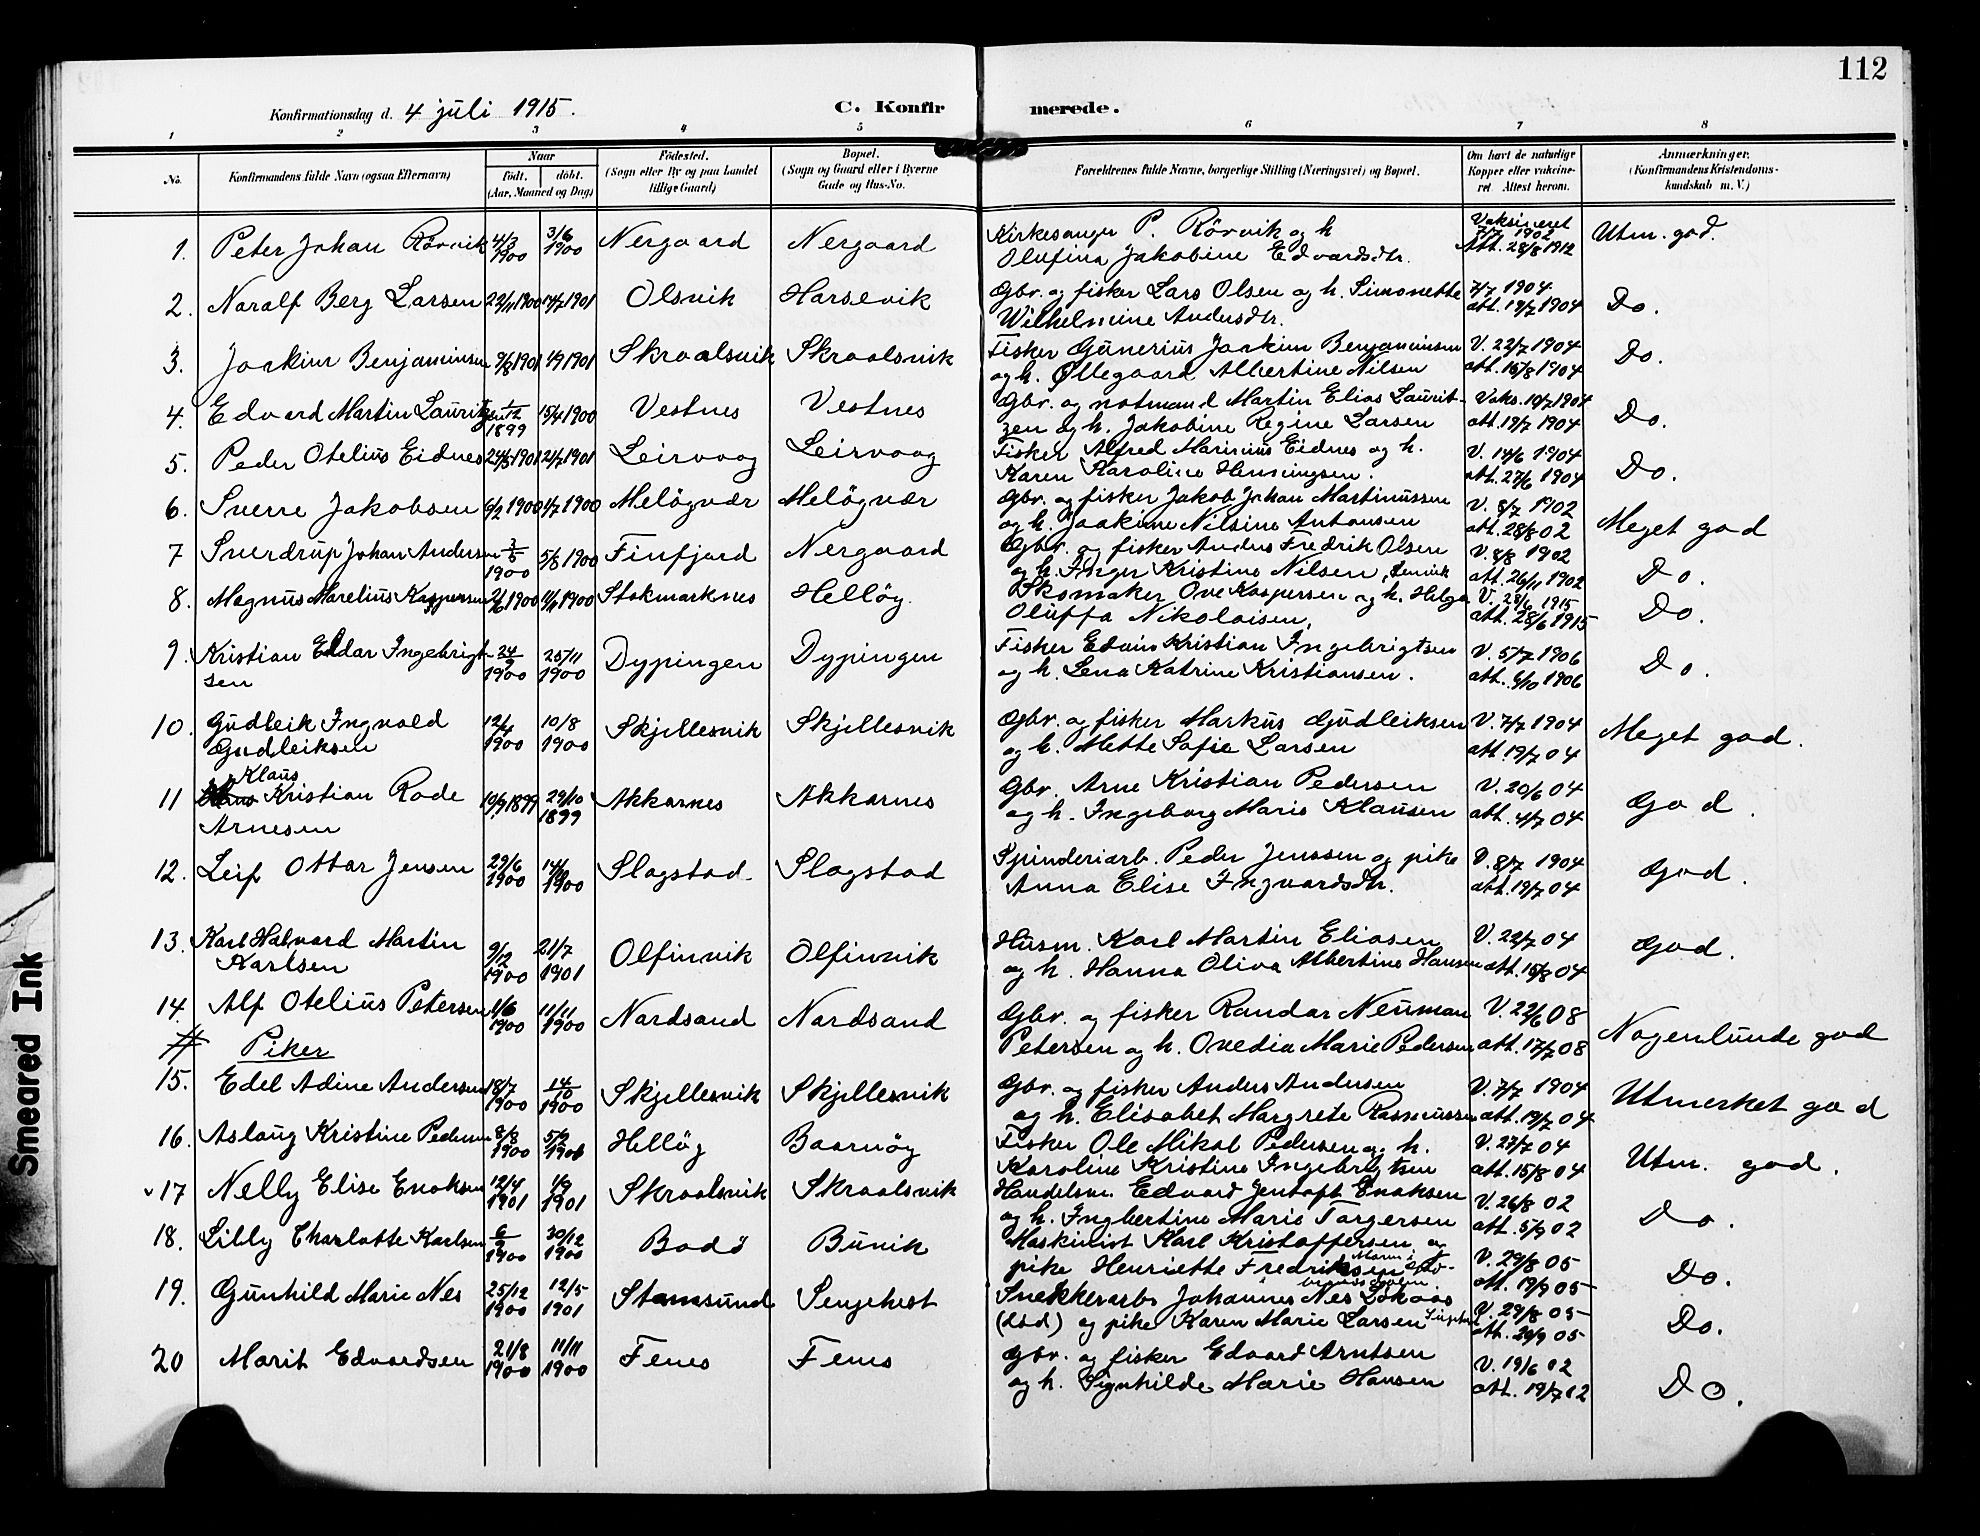 112
Konfirmationsdag d. 4 juli 1915.
C. Konfirmerede.
1 2 3 4 5 6 7 8
No. Konfirmandens fulde Navn (ogsaa Efternavn) Naar født. døbt. (Aar, Maaned og Dag) Fødested. (Sogn eller By og paa Landet tillige Gaard) Bopæl. (Sogn og Gaard eller i Byerne Gade og Hus-No. Forældrenes fulde Navne, borgerlige Stilling (Næringsvei) og Bopæl. Om havt de naturlige Kopper eller vakcineret. Attest herom. Anmærkninger. (Konfirmandens Kristendomskundskab m. V.)
1. Peter Johan Rörvik 4/3 1900 3/6 1900 Nergaard Nergaard Kirkesanger P. Rörvik og h Vaksineret 1902
Olufina Jakobine Edvardsdtr. Att. 28/8 1912 Utm. god.
2. Naralf Berg Larsen 22/11 1900 14/7 1901 Olsvik Harsevik Gbr. og fisker Lars Olsen og h. Simonette 7/7 1904
Wilhelmine Andersdtr. att. 19/7 1904 Do.
3. Joakim Benjaminsen 1901 1901 Skraalsvik Skraalsvik Fisker Gunerius Joakim Benjaminsen V. 22/7 1904
og h. Øllegaard Albertine Nilsen att. 15/8 1904 Do.
4. Edvard Martin Lauritzen 1/12 1899 15/4 1900 Vestnes Vestnes Gbr. og notmand Martin Elias Laurit- Vaks. 10/7 1904
zen og h. Jakobine Regine Larsen att. 19/7 1904 Do.
5. Peder Otelius Eidnes 24/5 1901 21/7 1901 Leirvaag Leirvaag Fisker Alfred Marinius Eidnes og h. V. 14/6 1904
Karen Karoline Henningsen. att. 27/6 1904 Do.
6. Sverre Jakobsen 6/2 1900 1/7 1900 Melögvær Melögvær Gbr. og fisker Jakob Johan Martinussen V. 8/7 1902
og h. Joakime Nilsine Antonsen att. 28/8 02 Meget god
7 Sverdrup Johan Andersen 3/5 1900 5/8 1900 Finfjord Nergaard Gbr. og fisker Anders Fredrik Olsen V. 8/8 1902
og h. Inger Kristine Nilsen, Lenvik att. 26/11 1902 Do.
8. Magnus Marelius Kaspersen 1900 1900 Stokmarknes Hellöy. Skomaker Ove Kaspersen og h. Helga V. 28/6 1915
Oluffa Nikolaisen, att. 28/6 1915 Do.
9. Kristian Eldar Ingebrigt- 24/9 1900 25/11 1900 Dypingen Dypingen Fisker Edvin Kristian Ingebrigtsen V. 5/7 1906
sen og h. Lena Katrine Kristiansen. att. 6/10 1906 Do.
10. Gudleik Ingvald 12/4 1900 10/8 1900 Skjellesvik Skjellesvik Gbr. og fisker Markus Gudleiksen V. 7/7 1904
Gudleiksen og h. Mette Sofie Larsen att. 19/7 04 Meget god.
Klaus
11 Kristian Rode 19/9 1899 29/10 1899 Akkarnes Akkarnes Gbr. Arne Kristian Pedersen V. 20/6 04
Arnesen og h. Ingeborg Marie Klausen att. 4/7 04 God.
12. Leif Ottar Jensen 29/6 1900 1900 Slagstad Slagstad Spinderiarb. Peder Jenssen og pike V. 8/7 1904
Anna Elise Ingvardsdtr. att. 19/7 04 God.
13. Karl Halvard Martin 9/12 1900 21/7 1901 Olfinvik Olfinvik Husm. Karl Martin Eliasen V. 22/7 04
Karlsen og h. Hanna Oliva Albertine Hansen att. 15/8 04 God.
14. Alf Otelius Petersen 1/6 1900 11/11 1900 Nordsand Nordsand Gbr. og fisker Randar Neuman V. 22/6 08
Petersen og h. Ovedia Marie Pedersen att. 17/7 08 Nogenlunde god
Piker
15. Edel Adine Andersen 18/7 1900 14/10 1900 Skjellesvik Skjellesvik Gbr. og fisker Anders Andersen V. 7/7 1904
og h. Elisabet Margrete Rasmussen att. 19/7 04 Utmerket god
16. Aslaug Kristine Pedersen 8/8 1900 Hellöy Baarnöy Fisker Ole Mikal Pedersen og h. V. 27/7 04
Karoline Kristine Ingebrigtsen att. 15/8 04 Utm. god.
17 Nelly Elise Enoksen 12/4 1901 1901 Skraalsvik Skraalsvik Handelsm. Edvard Jentoft Enoksen V. 26/8 02
og h. Ingbertine Marie Torgersen att. 5/9 02 Do.
18. Lilly Charlotte Karlsen 6/9 1900 30/12 1900 Bodö Bunik Maskinist Karl Kristoffersen og V. 29/8 05
pike Henriette Fredriksen att. 19/9 05 Do.
19. Gunhild Marie Nes 25/12 1900 12/5 1901 Stamsund Sengehest Snekkerarb. Johannes Nes V. 29/8 05
(död) og pike Karen Marie Larsen att. 29/9 05 Do.
20 Marit Edvardsen 21/8 1900 11/11 1900 Fenes Fenes Gbr. og fisker Edvard Arntsen V. 19/6 02
og h. Signhilde Marie Hansen att. 19/7 12 Do.
Smeared Ink